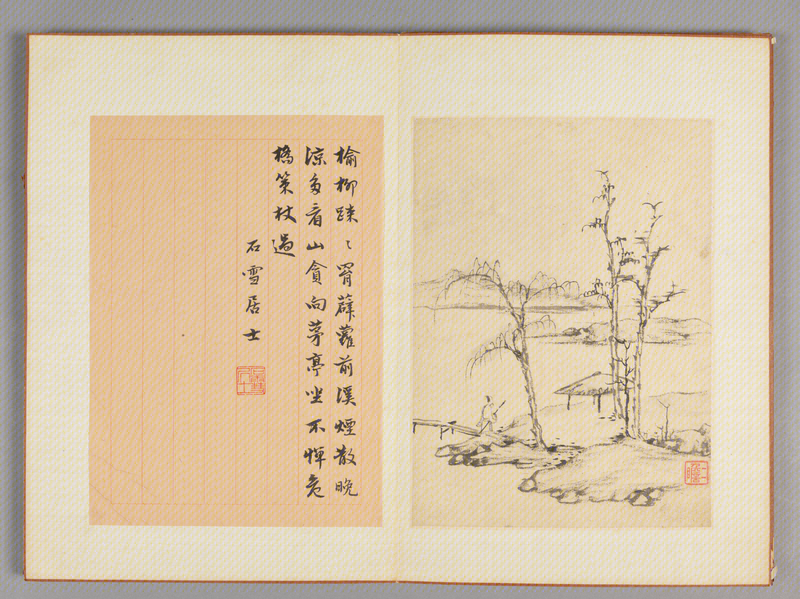 榆柳踈〻罥薜蘿前溪煙散晚
涼多看山貪向茅亭坐不憚危
橋策杖過
石雪居士